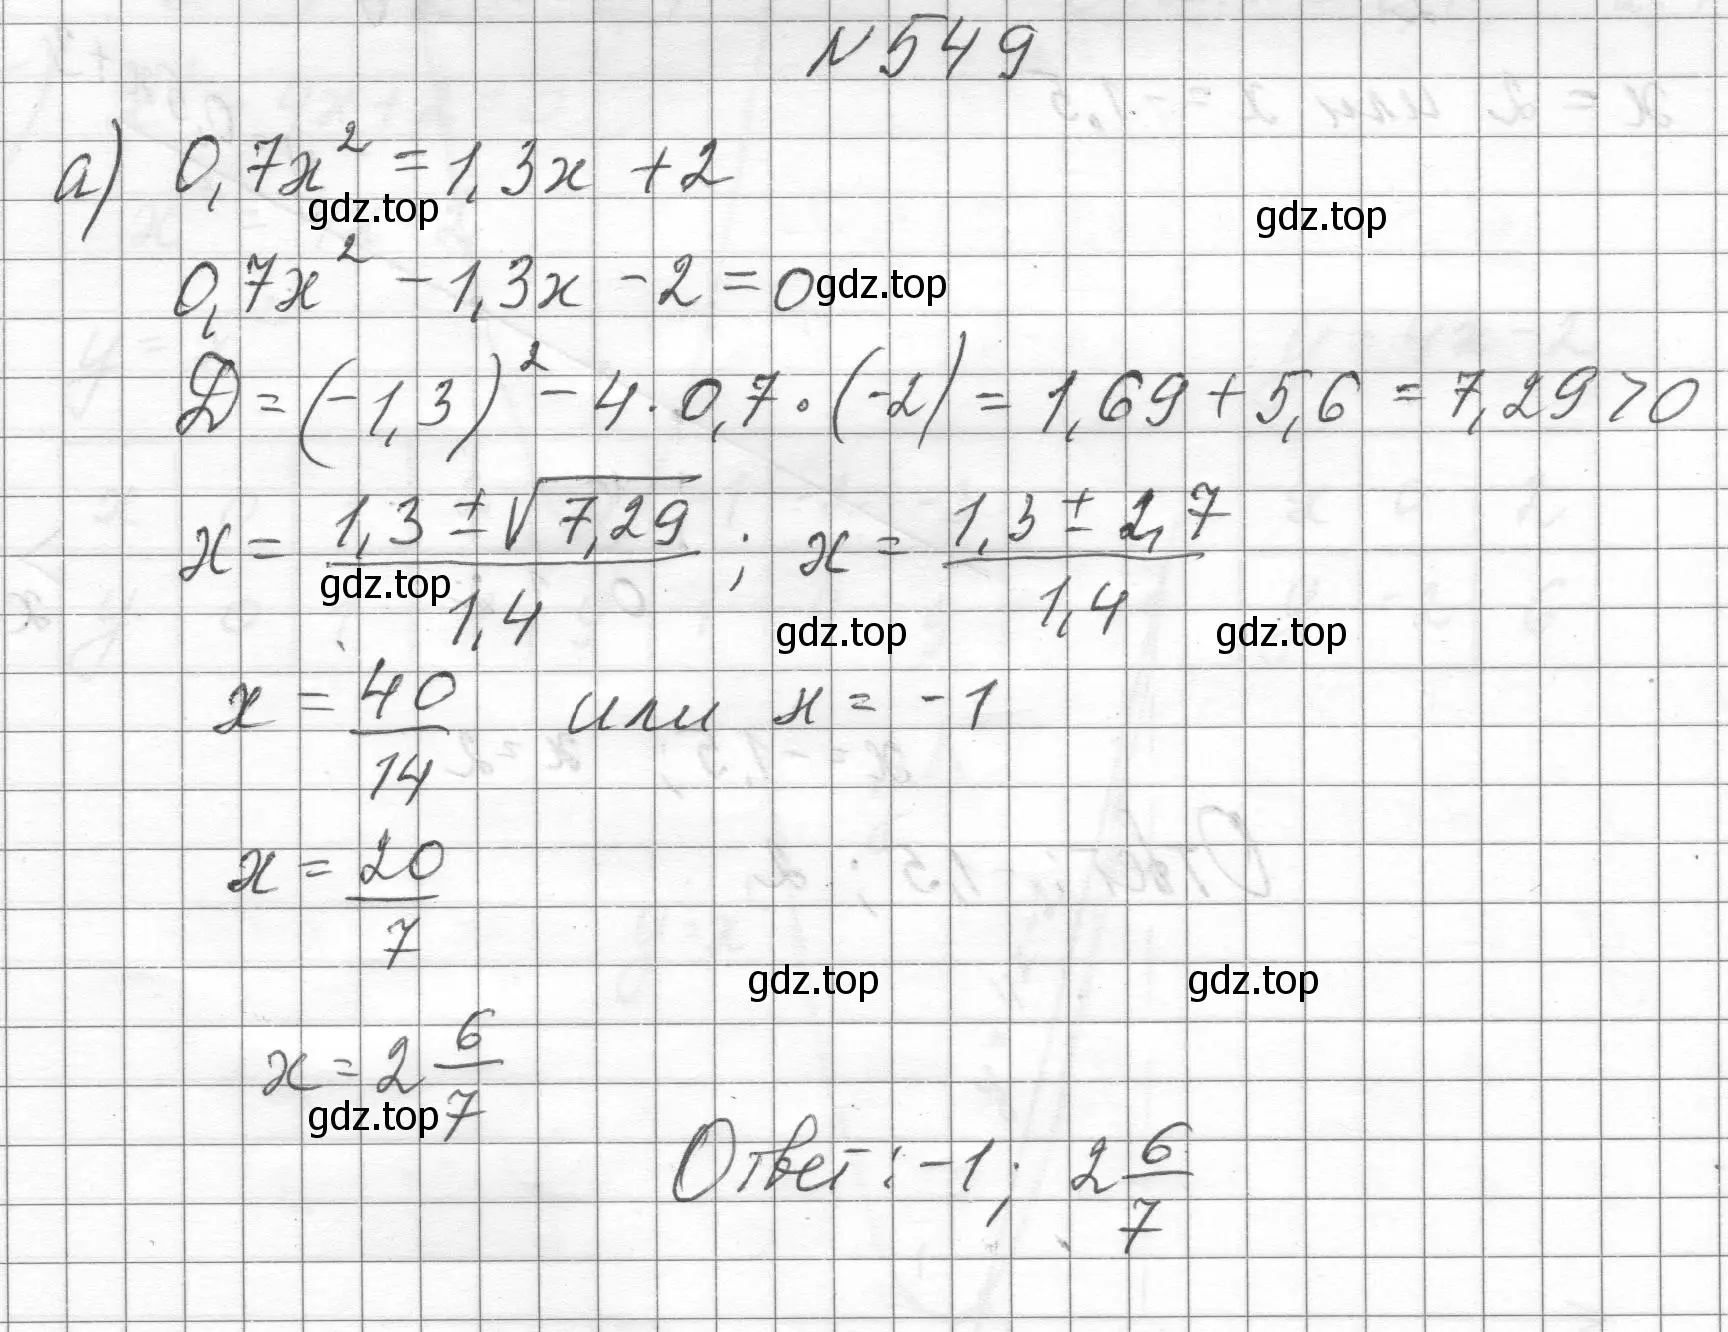 №549
а) 0,7x² = 1,3x + 2
gdz.top gdz.top
0,7x² - 1,3x - 2 = 0 gdz.top
D = (-1,3)² - 4 · 0,7 · (-2) = 1,69 + 5,6 = 7,29 > 0
x = (1,3 ± √7,29)/1,4 ; x = (1,3 ± 2,7)/1,4
gdz.top gdz.top gdz.top
x = 40/14 или x = -1
x = 20/7
gdz.top gdz.top
x = 2 6/7
gdz.top
Ответ: -1; 2 6/7